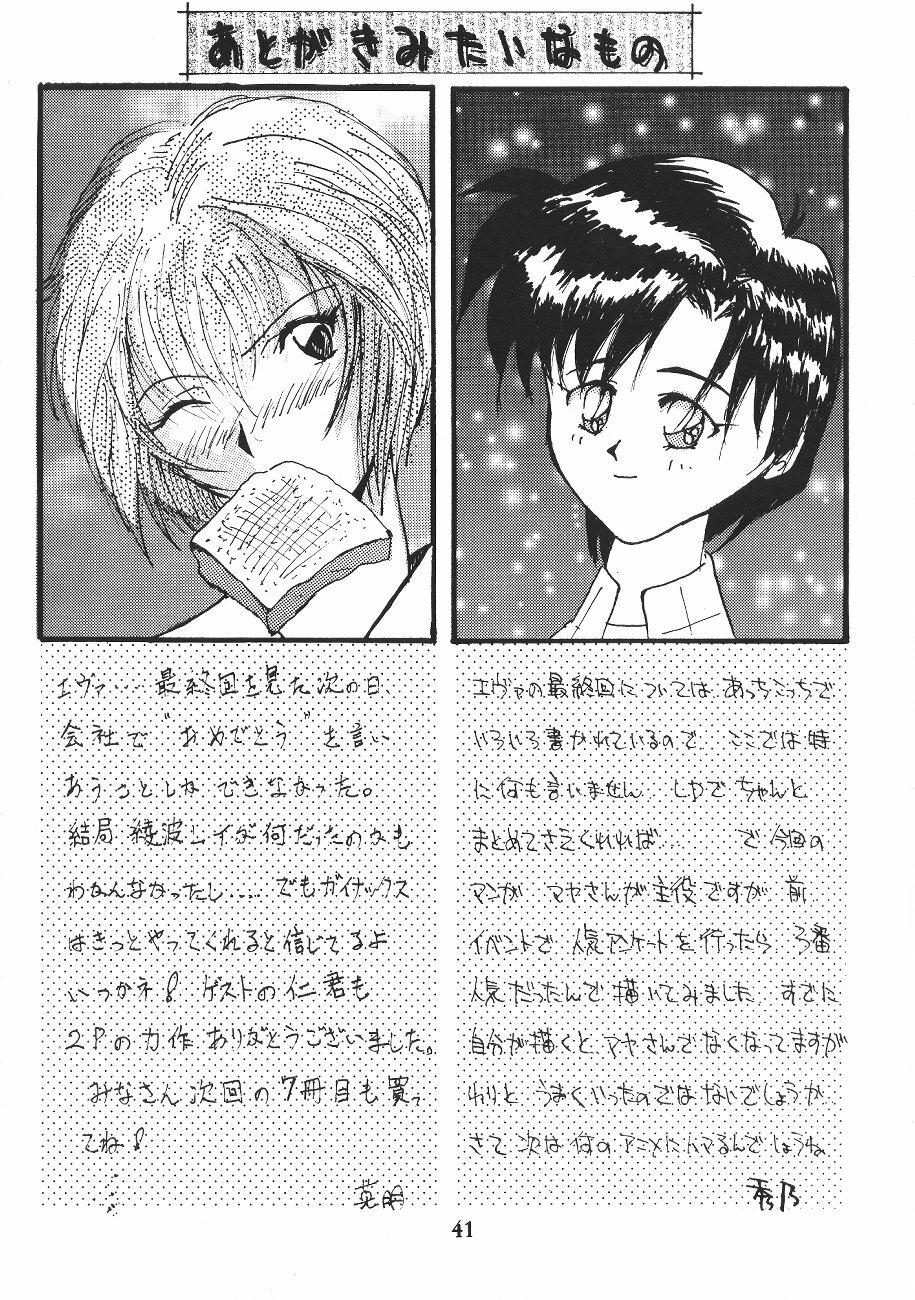 あとがきみたいなもの
エヴァ… 最終回を見た次の日、
会社で“おめでとう”を言い
あうことしかできなかった。
結局 綾波レイが何だったのかも
わかんなかったし…. でもガイナックス
はきっとやってくれると信じてるよ
いつかネ! ゲストの仁君も
2Pの力作ありがとうございました。
みなさん次回の7冊目も買っ
てね!
英明
エヴァの最終回については あっちこっちで
いろいろ書かれているので ここでは特
に何も言いません LDでちゃんと
まとめてさえくれれば… で今回の
マンガ マヤさんが主役ですが 前
イベントで 人気アンケートを行ったら 3番
人気だったんで描いてみました すでに
自分が描くと マヤさんでなくなってますが
わりと うまくいったのではないでしょうか
さて次は何のアニメにハマるんでしょうね
秀乃
41